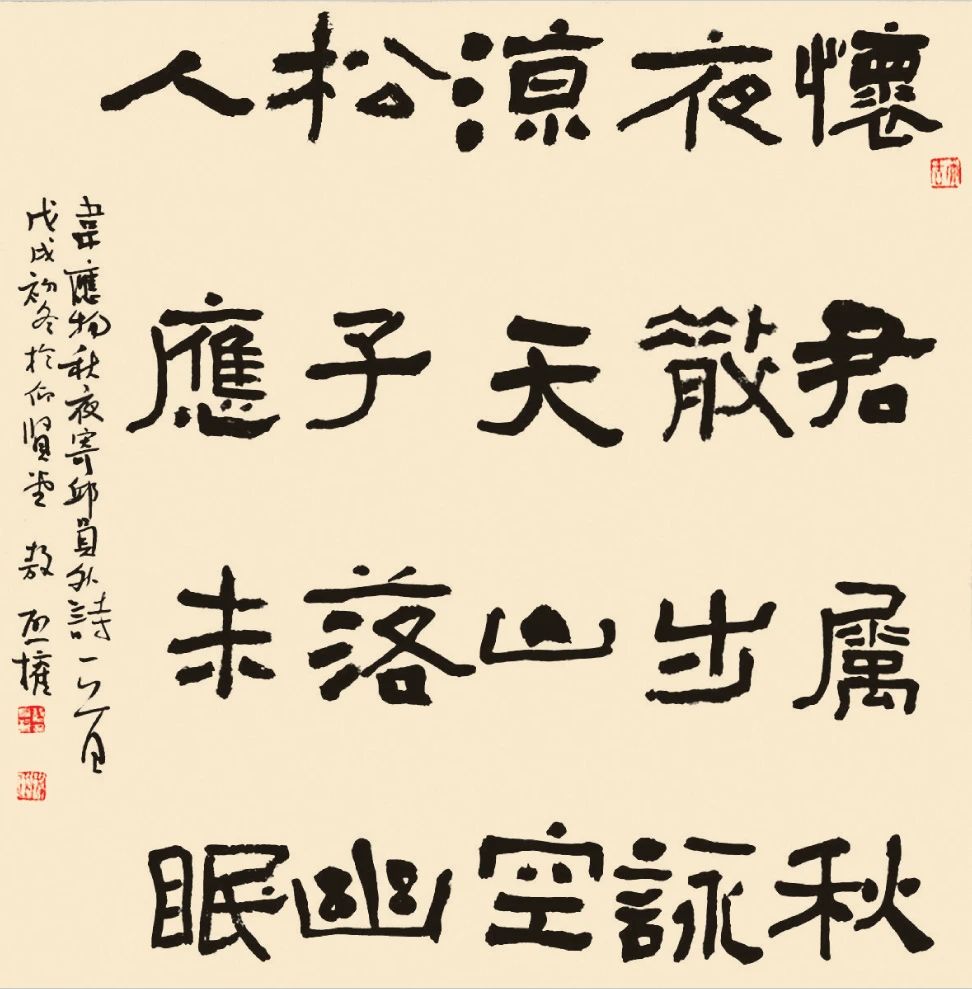 懷君属秋
夜散步詠
涼天山空
松子落幽
人應未眠
韋應物秋夜寄邱員外詩一首
戊戌初冬於仰賢堂